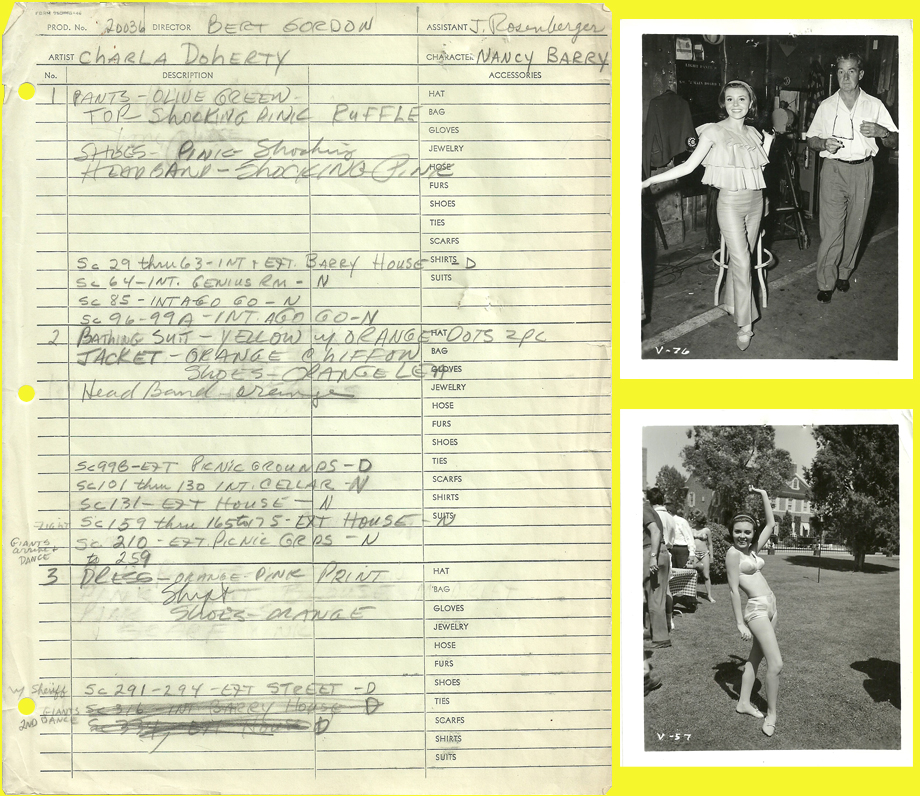 PROD. No. 20036 DIRECTOR BERT GORDON ASSISTANT J. Rosenberger
ARTIST CHARLA DOHERTY CHARACTER NANCY BARRY
No. DESCRIPTION ACCESSORIES
1 PANTS - OLIVE GREEN - HAT
TOP SHOCKING PINK RUFFLE BAG
GLOVES
SHOES - PINK Shocking JEWELRY
HEADBAND - SHOCKING PINK HOSE
FURS
SHOES
TIES
SCARFS
Sc 29 thru 63 - INT + EXT. BARRY HOUSE - D SHIRTS
Sc 64 - INT. GENIUS RM - N SUITS
SC 85 - INT AGO GO - N
SC 96-99A - INT. AGO GO - N
2 BATHING SUIT - YELLOW w/ ORANGE DOTS 2PC HAT
JACKET - ORANGE CHIFFON BAG
SHOES - ORANGE GLOVES
Head Band - orange JEWELRY
HOSE
FURS
SHOES
SC99B - EXT PICNIC GROUNDS - D TIES
SC101 thru 130 INT. CELLAR - N SCARFS
SC131 - EXT HOUSE - N SHIRTS
FIGHT SC 159 thru 165 to 175 - EXT HOUSE - N SUITS
GIANTS
DANCE
SC. 210 - EXT PICNIC GRDS - N
to 259
3 DRESS - ORANGE - PINK PRINT HAT
Shift BAG
SHOES - ORANGE GLOVES
JEWELRY
HOSE
FURS
w/ Sheriff SC 291-294 - EXT STREET - D SHOES
GIANTS 2ND DANCE
SC 316 - INT BARRY HOUSE - D TIES
D SCARFS
SHIRTS
SUITS
V-76
V-57